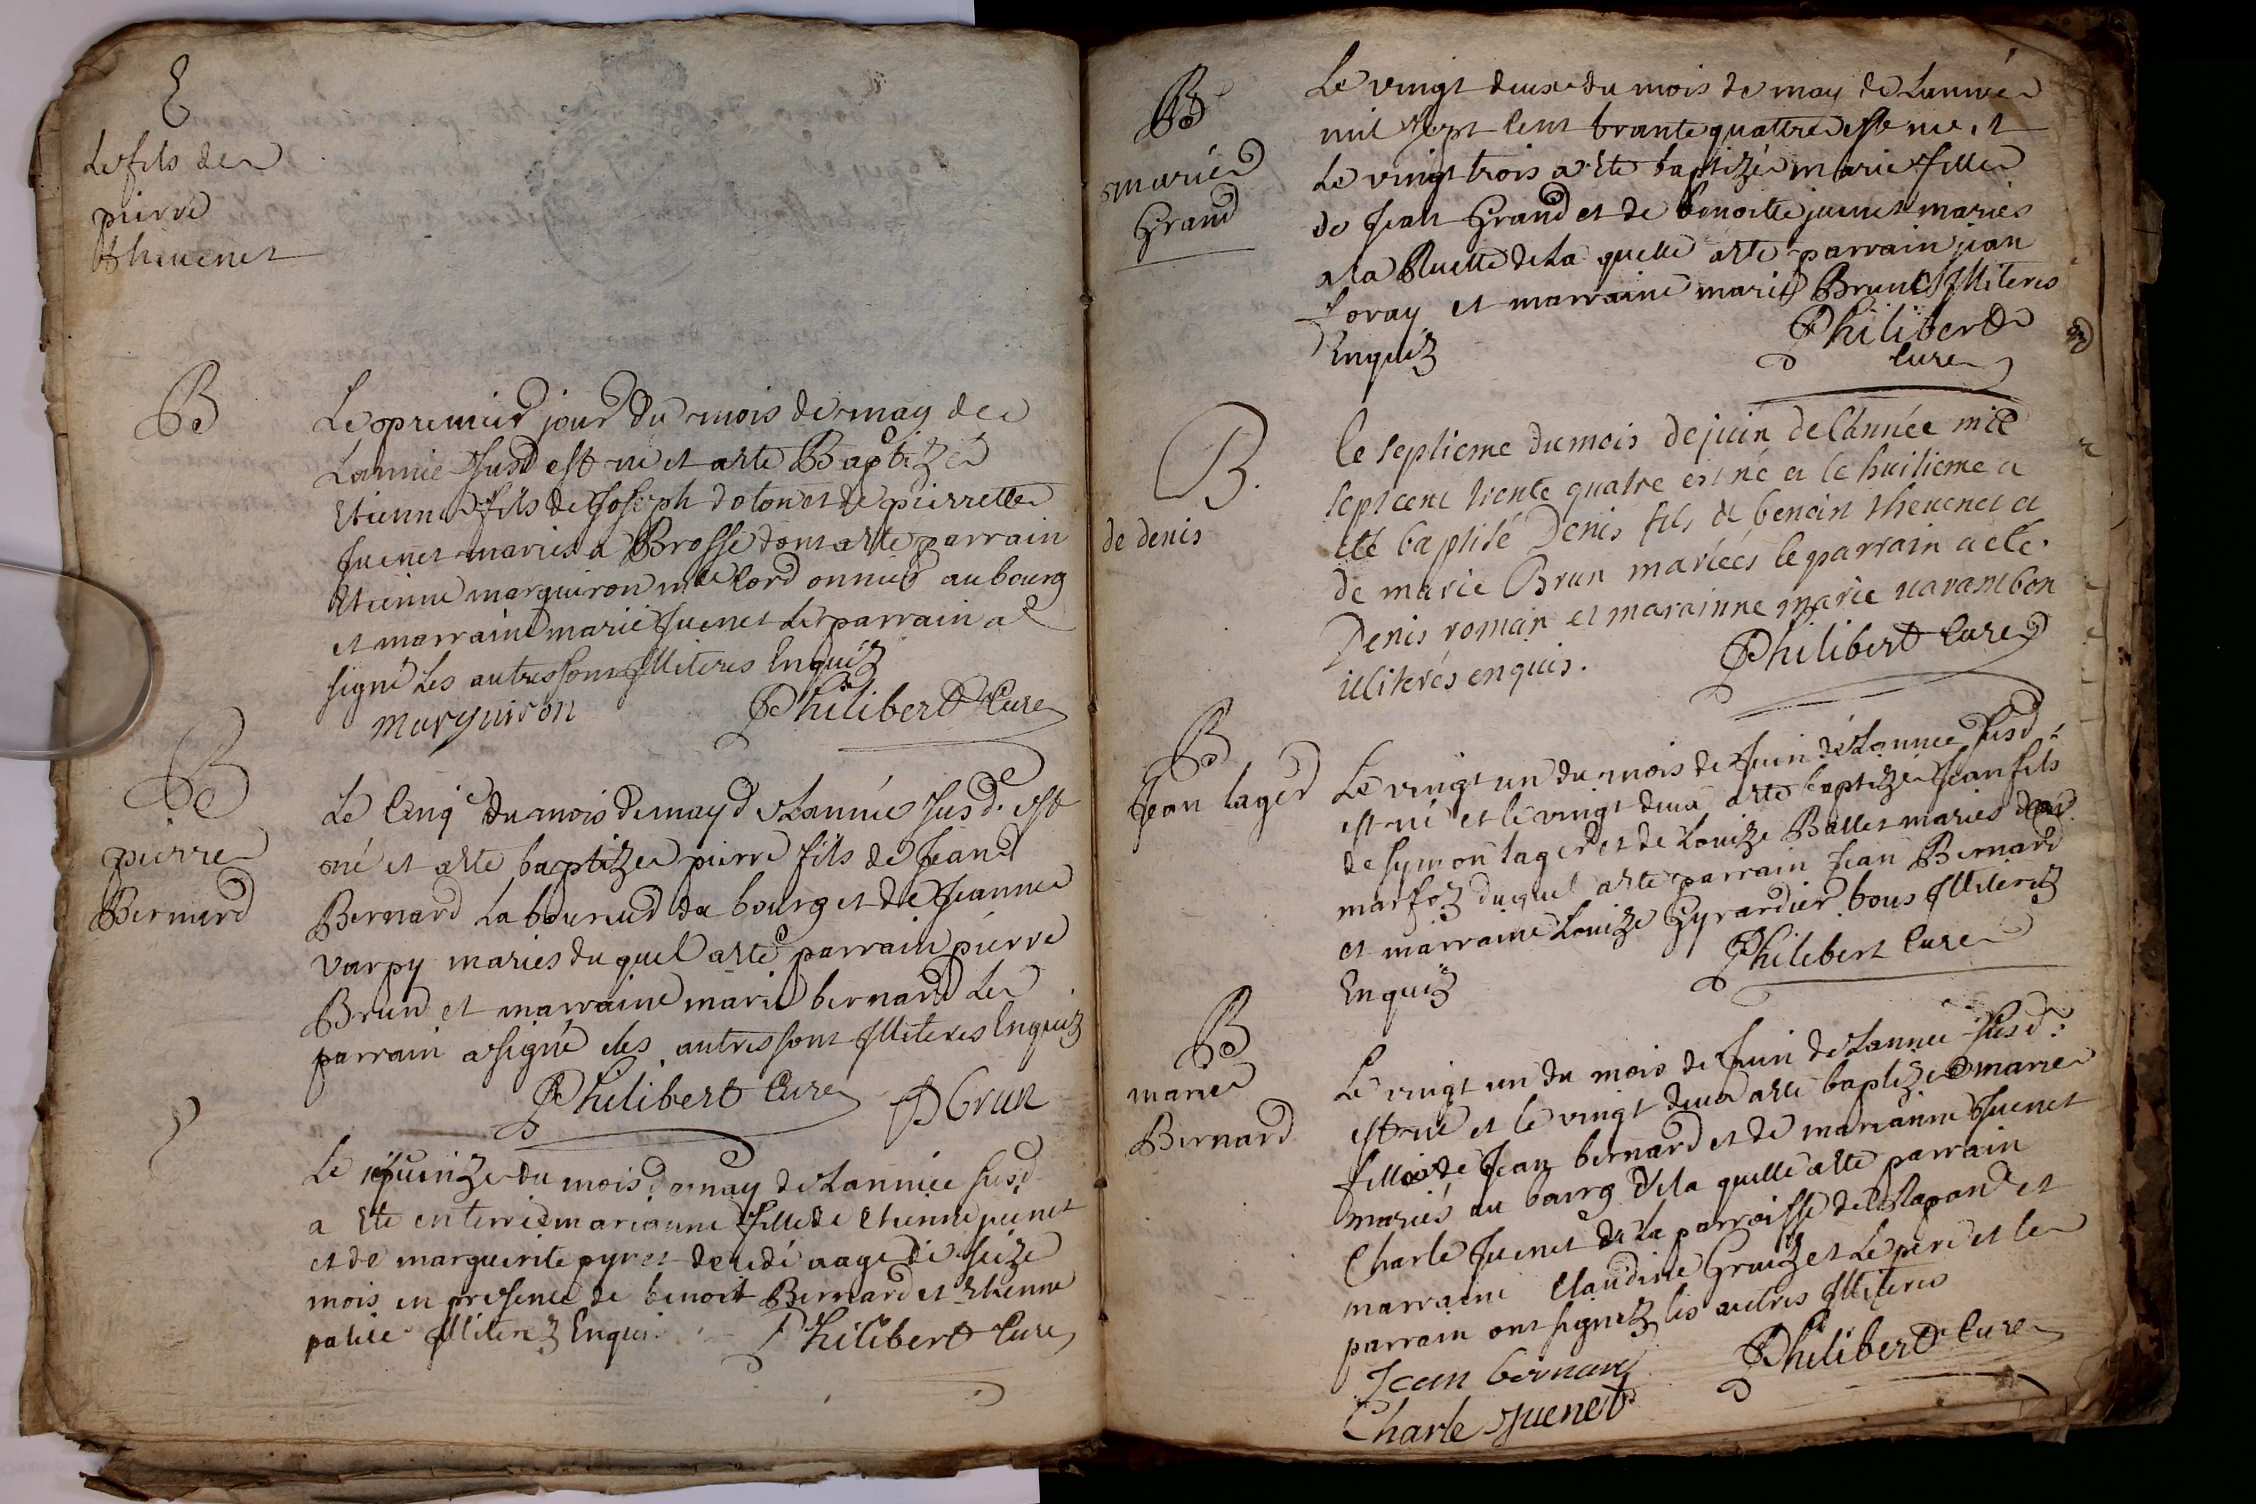 E
Le fils de
pierre
theuenet
B
Le premier jour du mois de may de
Lannee susd est ne et a este Baptizé
Etienne fils de Joseph doton et de pierrette
Juenet maries a Brosse dont a este parrain
Etienne marquiron mtre Cordonnier au bourg
et marraine marie Juenet Le parrain a
signé Les autres sont Illiteres Enquiz
marquiron Philibert Cure
B
pierre
Bernard
Le Cinqe du mois de may de Lannée susd. est
né et a este baptize pierre fils de Jean
Bernard Laboureur du bourg et de Jeanne
Varpy maries du quel a esté parrain pierre
Brun et marraine marie bernard Le
parrain a signé les autres sont Illiteres Enquiz
Philibert Cure P Brun
Le quinze du mois de may de Lannee susd
a este enterre marianne fille de Etienne juenet
et de marguerite pyret aage de seize
mois en presence de benoit Bernard et Etienne
Illiterez Enquis Philibert Cure
B
marie
Grand
Le vingt deux du mois de may de Lannée
mil sept cent trante quattre est ne et
Le vingt trois a este baptizé marie fille
de Jean Grand et de benoite juenet maries
a la Ruette de La quelle a este parrain jean
foray et marraine marie Brun Illiteres
Enquiz Philibert
Cure
B.
de denis
le septieme du mois de juin de l'année mil
sept cent trente quatre est né et le huitieme a
eté baptisé Denis fils de benoin thevenet et
de marie Brun mariées le parrain a eté.
Denis roman et marainne marie varambon
illiterés enquis. Philibert Cure
B
Jean lager
Le vingt un du mois de Juin de Lannee susd.
est né et le vingt deux a este baptizé Jean fils
de symon lager et de Louize Ballet maries
marfoz duquel a este parrain Jean Bernard
et marraine Louize Gyrardier tous Illiterez
Enquiz Philibert Cure
B
marie
Bernard
Le vingt un du mois de Juin de Lannee susd.
est ne et le vingt deux a este baptizé marie
fille de Jean bernard et de marianne Juenet
mariés au bourg de la quelle a este parrain
Charle Juenet de La parroisse de et
marraine Claudine Gruiz et Le pere et le
parrain ont signez les autres Illiteres
Jean bernard Philibert Cure
Charle Juenet